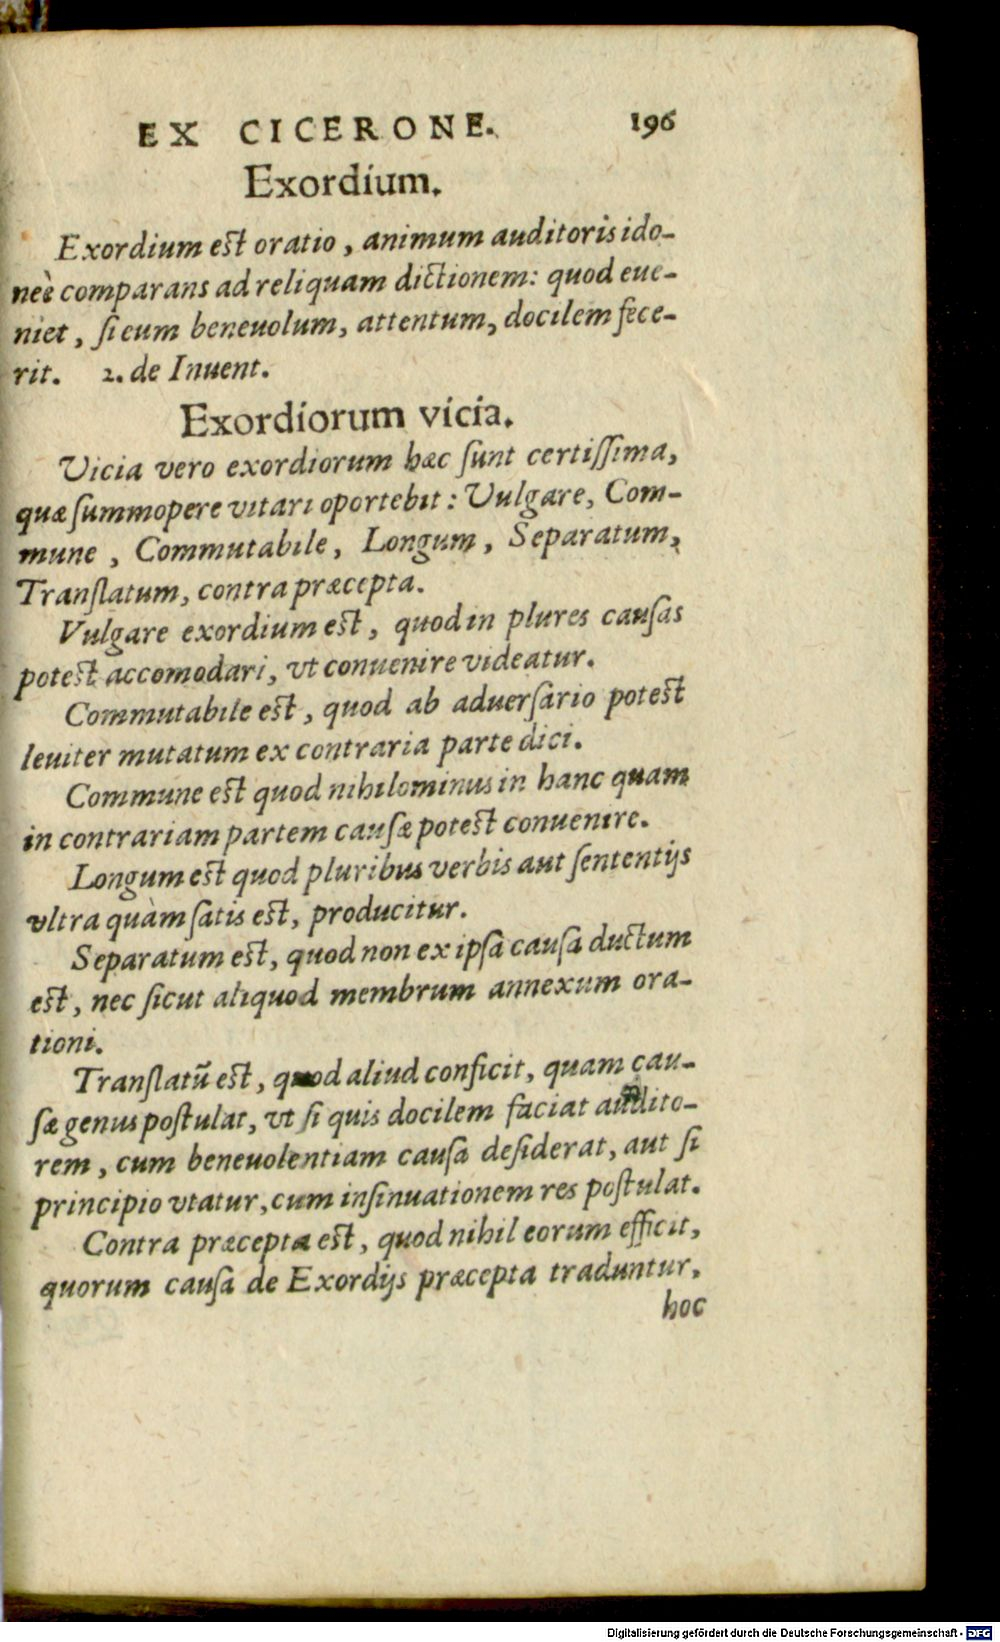 EX CICERONE. 196
Exordium.
Exordium est oratio, animum auditoris ido-
neè comparans ad reliquam dictionem: quod eue-
niet, ſi eum beneuolum, attentum, docilem fece-
rit. 2. de Inuent.
Exordiorum vicia.
Vicia vero exordiorum hæc ſunt certiſſima,
quæ ſummopere vitari oportebit: Vulgare, Com-
mune, Commutabile, Longum, Separatum,
Tranſlatum, contra præcepta.
Vulgare exordium est, quod in plures cauſas
potest accomodari, vt conuenire videatur.
Commutabile est, quod ab aduerſario potest
leuiter mutatum ex contraria parte dici.
Commune est quod nihilominus in hanc quam
in contrariam partem cauſæ potest conuenire.
Longum est quod pluribus verbis aut ſententijs
vltra quàm ſatis est, producitur.
Separatum est, quod non ex ipſa cauſa ductum
est, nec ſicut aliquod membrum annexum ora-
tioni.
Tranſlatũ est, quod aliud conficit, quam cau-
ſæ genus poſtulat, vt ſi quis docilem faciat audito-
rem, cum beneuolentiam cauſa deſiderat, aut ſi
principio vtatur, cum inſinuationem res poſtulat.
Contra præcepta est, quod nihil eorum efficit,
quorum cauſa de Exordijs præcepta traduntur,
hoc
Digitalisierung gefördert durch die Deutsche Forschungsgemeinschaft - DFG